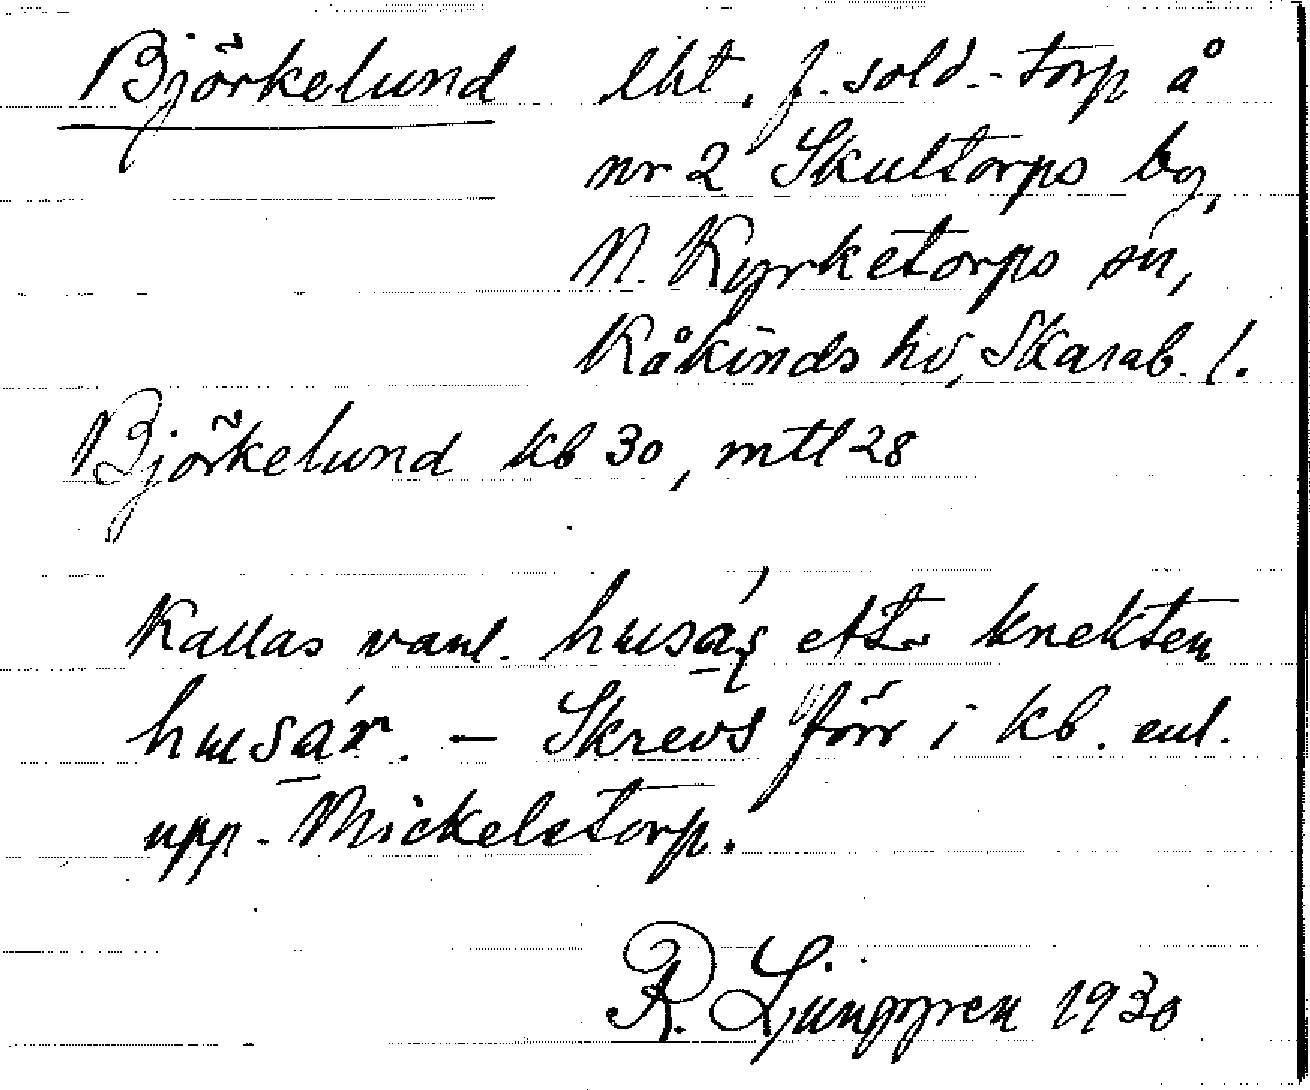 Björkelund lht, f. sold.-torp å
nr 2 Skultorps by,
N. Kyrketorps sn,
Kåkinds hd, Skarab. l.
Björkelund kb 30, mtl 28
Kallas vanl. husá̱ʂ ett knekten
husá̱r. – Skrevs förr i kb. enl.
upp. Mickelstorp.
R. Ljunggren 1930